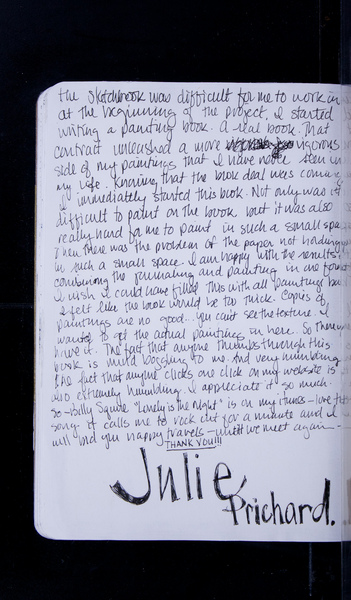 the sketchbook was difficult for me to work in
at the beginning of the project. I started
writing a painting book. A real book. That
contract unleashed a more vigorous
side of my paintings that I have never seen in
my life. Knowing that the book deal was coming
I immediately started this book. Not only was it
difficult to paint on the book but it was also
really hard for me to paint in such a small space
Then there was the problem of the paper not holding up
in such a small space. I am happy with the results of
combining the journaling and painting in one format
I wish I could have filled this with all paintings but
I felt like the book would be too thick. Copies of
paintings are no good. You can't see the texture. I
wanted to get the actual paintings in here. So there you
have it. The fact that anyone thumbs through this
book is mind boggling to me. And very humbling
The fact that anyone clicks one click on my website is
also extremely humbling. I appreciate it so much.
So - Billy Squire "Lonely is the Night" is on my itunes - love that
song. It calls me to rock out for a minute and I
will bid you happy travels - until we meet again -
THANK YOU!!!
Julie
Prichard.